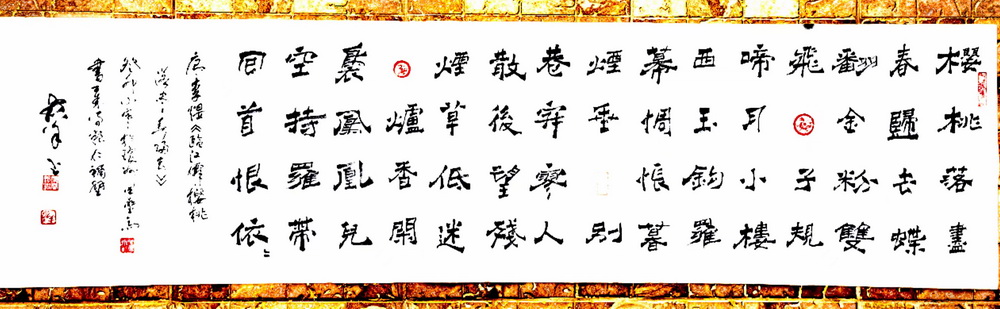 櫻桃落盡
春歸去蝶
翻金粉雙
飛子規
啼月小樓
西玉鈎羅
幕惆悵暮
煙垂別
巷寂寥人
散後望殘
煙草低迷
爐香閒
裊鳳凰兒
空持羅帶
回首恨依〻
唐李煜《臨江僊櫻桃
落盡春歸去》
癸卯小雪
書